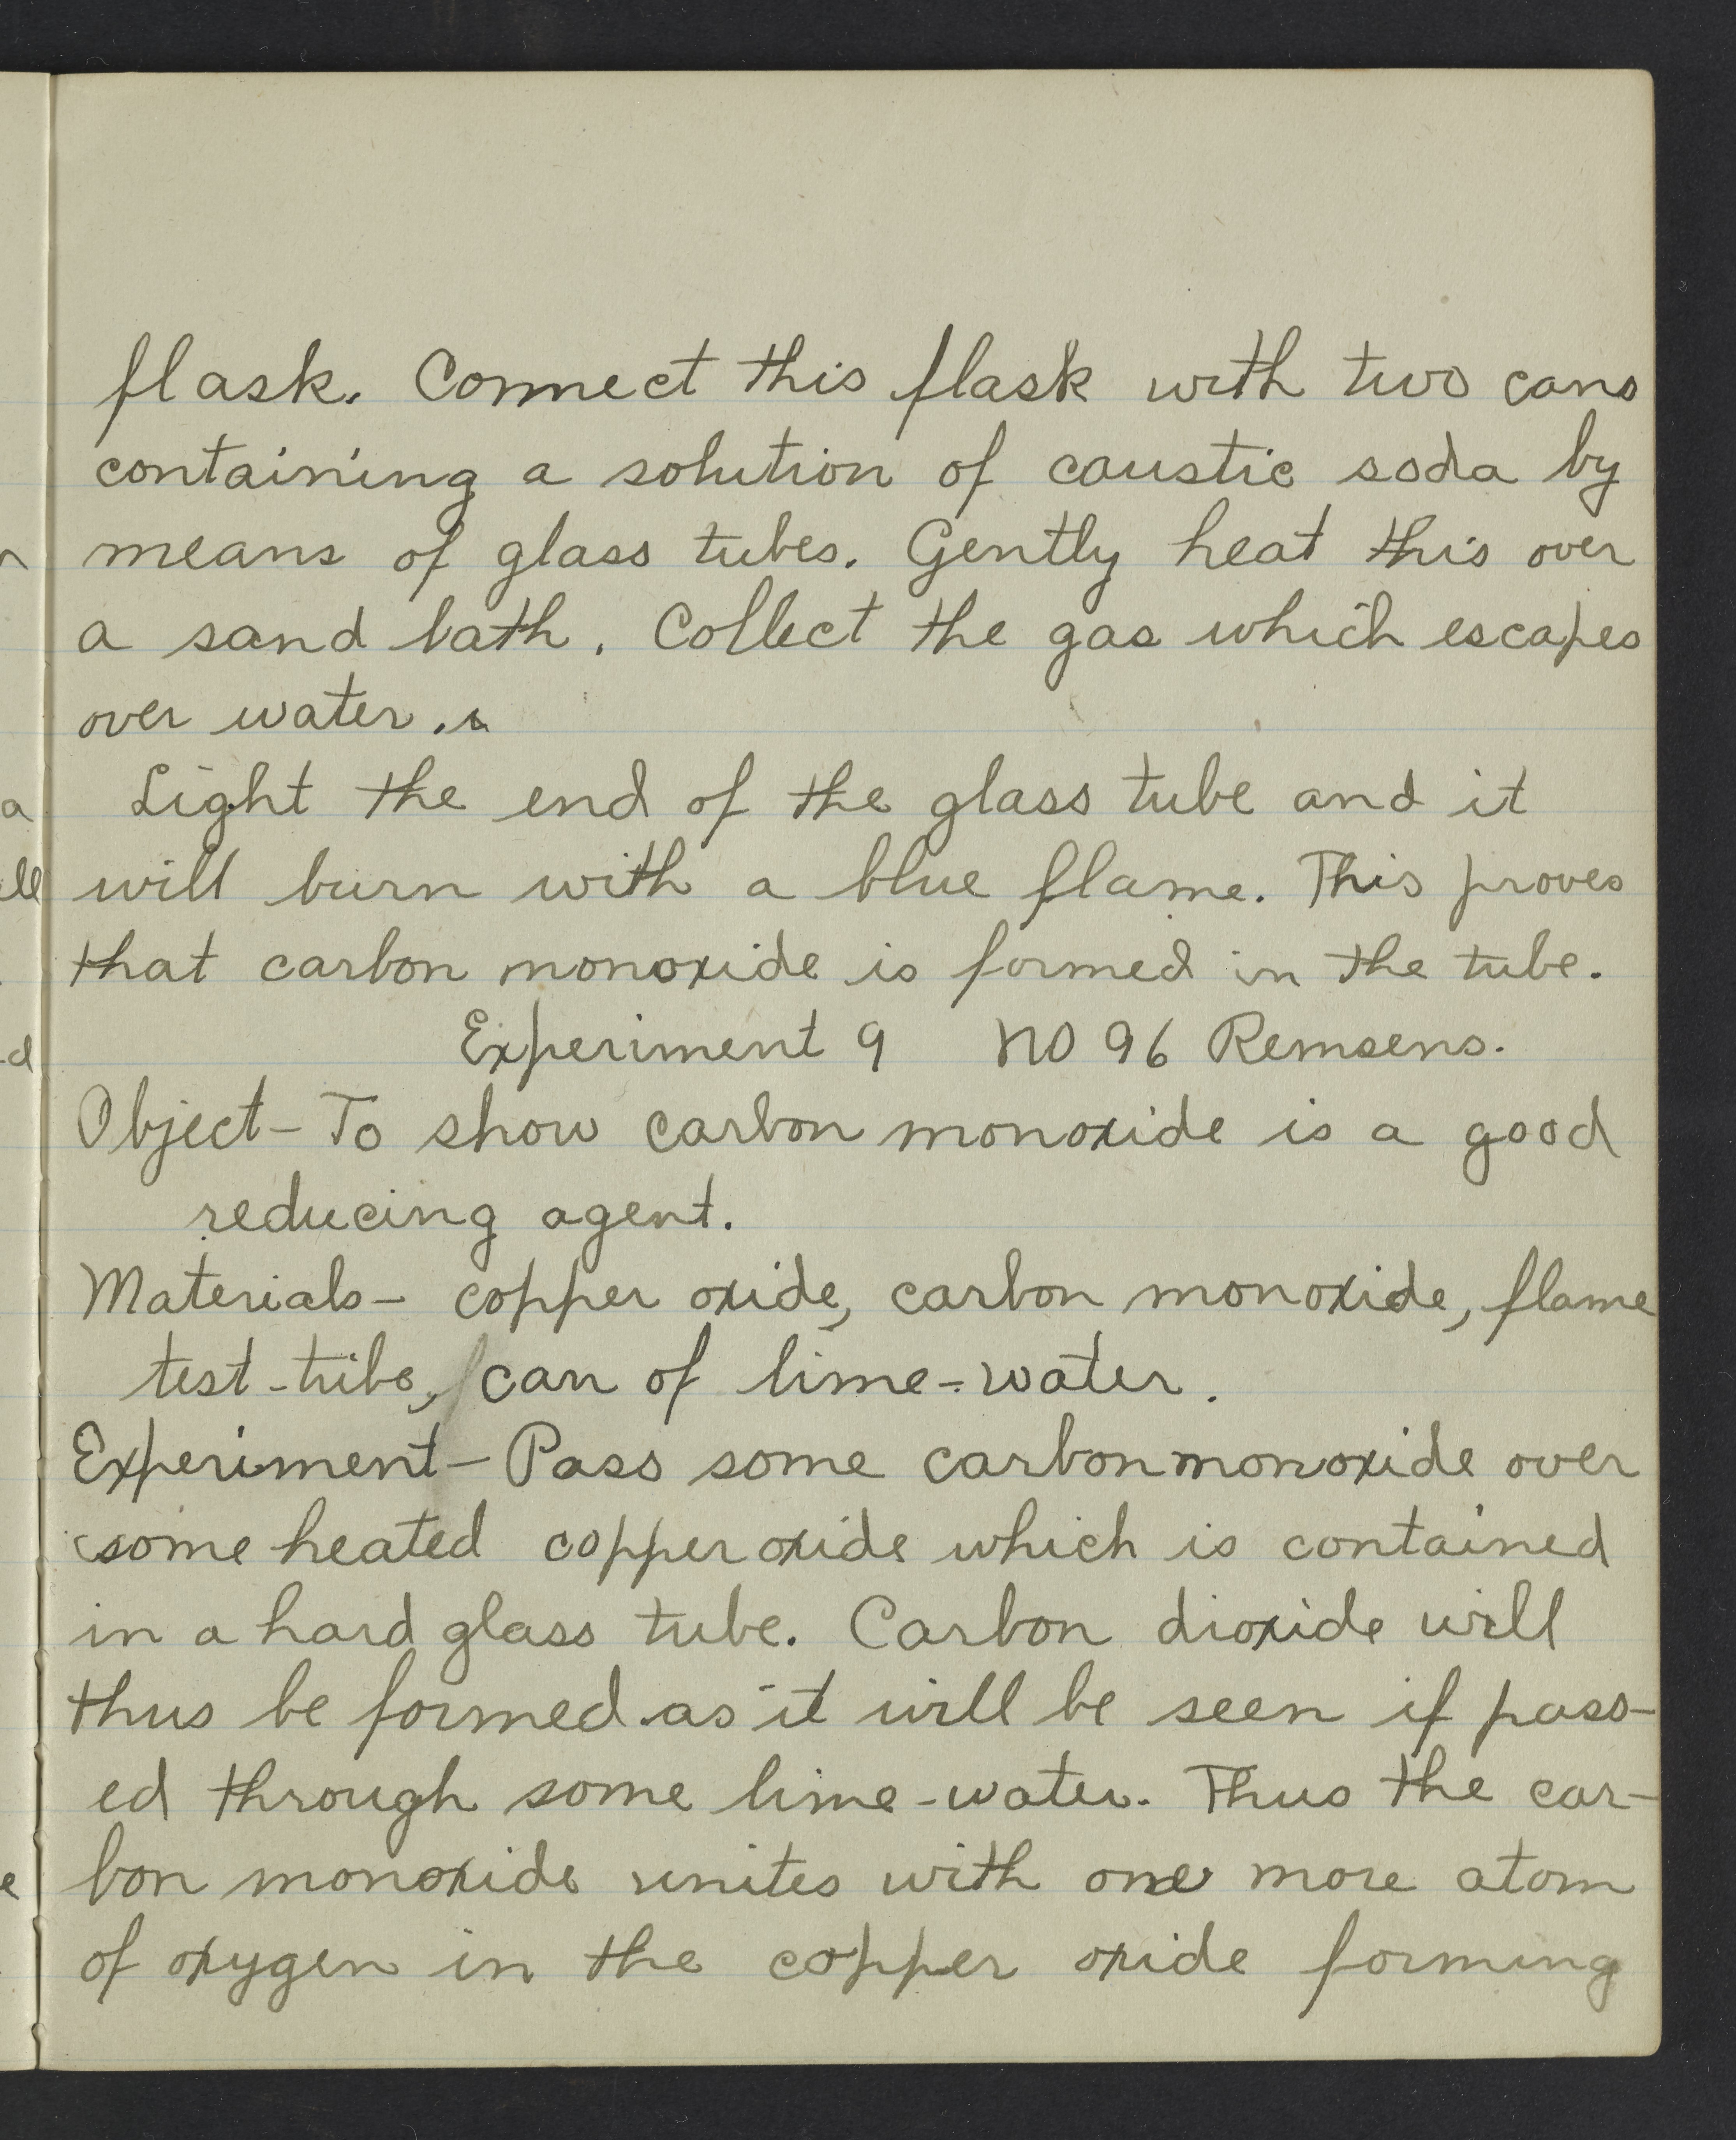 flask. Connect this flask with two cans
containing a solution of caustic soda by
means of glass tubes. Gently heat this over
a sand bath. Collect the gas which escapes
over water.
Light the end of the glass tube and it
will burn with a blue flame. This proves
that carbon monoxide is formed in the tube.
Experiment 9 NO 96 Remsens.
Object- To show carbon monoxide is a good
reducing agent.
Materials- copper oxide, carbon monoxide, flame
test-tube, can of lime-water.
Experiment- Pass some carbon monoxide over
some heated copper oxide which is contained
in a hard glass tube. Carbon dioxide will
thus be formed as it will be seen if pass-
ed through some lime-water. Thus the car-
bon monoxide unites with one more atom
of oxygen in the copper oxide forming